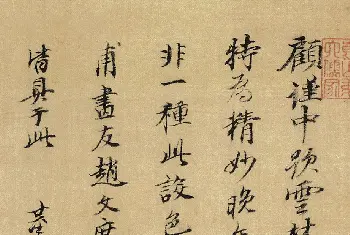 顧謹中題雲林
特為精妙晚年
非一種此設色
甫畫友趙文度
清真于此
其昌